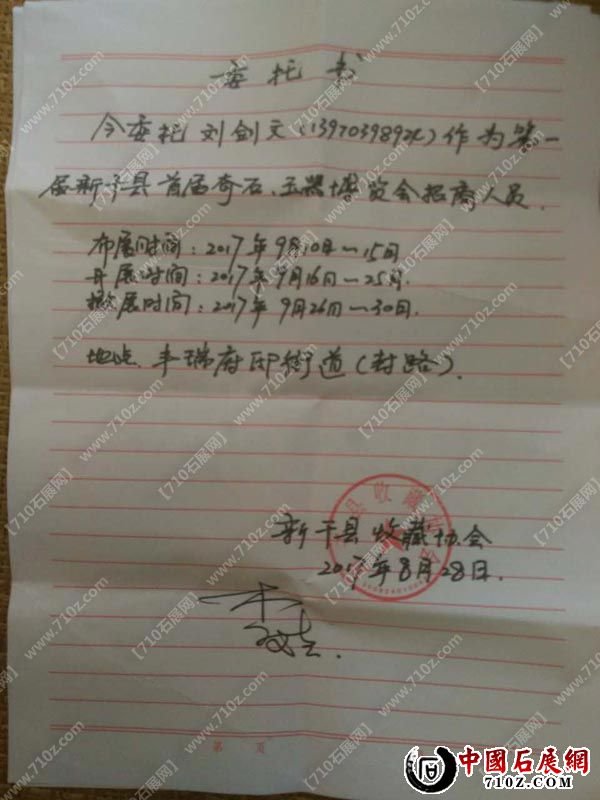 委托书
今委托刘剑文(1397039892)作为第一
届新干县首届奇石、玉器博览会招商人员.
布展时间:2017年9月10日—15日
开展时间:2017年9月16日—25日.
撤展时间:2017年9月26日—30日.
地点、丰瑞府邸街道(封路).
县收藏
新干县收藏协会
2017年8月28日.
第 页
【710石展网】
www.710z.com
中國石展網
710Z.COM